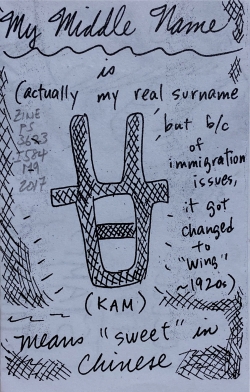 My Middle Name
is
(actually my real surname
but b/c
of
immigration
issues,
it got
changed
to
"Wing"
~1920s)
ZINE
PS
3623
I584
M9
2017
甘
(KAM)
means "sweet" in
Chinese